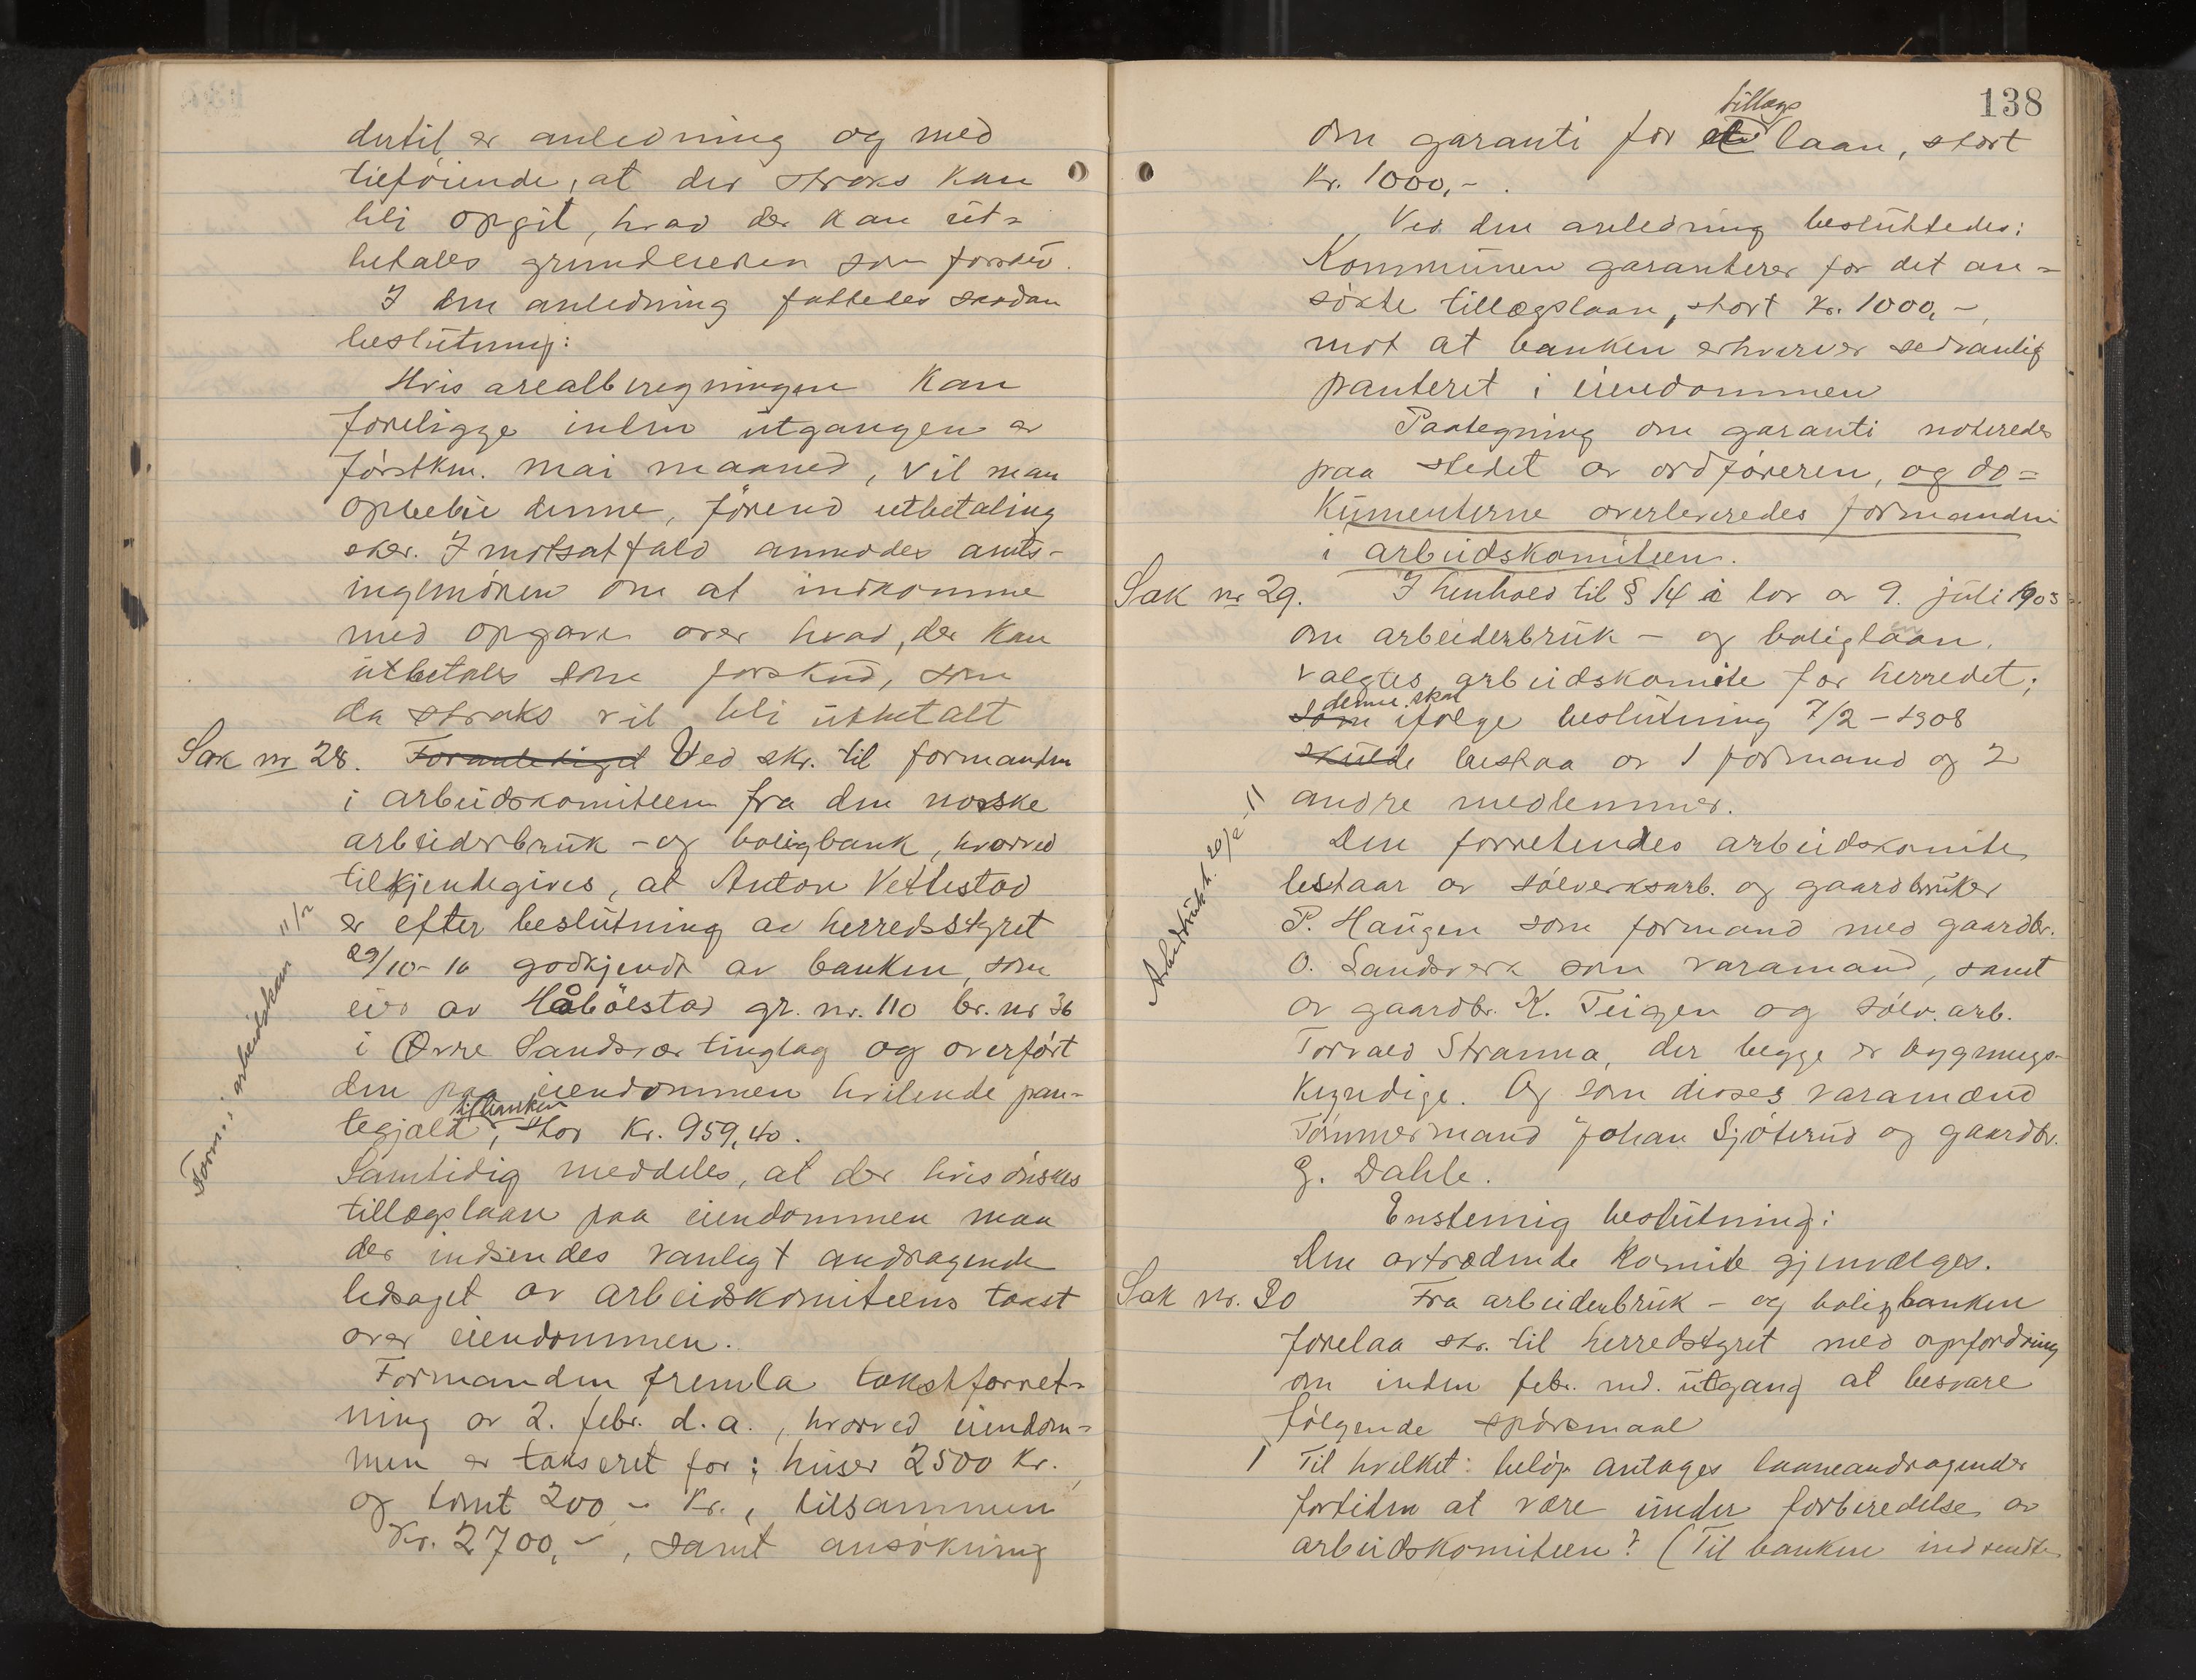 dertil er anledning og med
tilføiende, at der straks kan
bli opgit, hvad der kan ut-
betales grundeieren som forskud.
I den anledning fattedes saadan
beslutning:
Hvis arealberegningen kan
foreligge inden utgangen av
førstkm. mai maaned, vil man
opbebie denne, førend utbetaling
sker. I motsat fald anmodes amts-
ingeniøren om at indkomme
med opgave over hvad, der kan
utbetales som forskud, som
da straks vil bli utbetalt
Sak nr 28. Foranlediget Ved skr. til formanden
i arbeidskomiteen fra den norske
arbeiderbruk - og boligbank, hvorved
tilkjendegives, at Anton Vettestad
er efter beslutning av herredsstyret
29/10-10 godkjendt av banken, som
eier av Håbølstad gr. nr. 110 br. nr 36
i Øvre Sandsvær tinglag og overført
den paa eiendommen hvilende pan-
til banken
tegjæld, stor Kr. 959,40.
Samtidig meddeles, at der hvis ønskes
tillægslaan paa eiendommen maa
der indsendes vanligt andragende
ledsaget av arbeidskomiteens takst
over eiendommen.
Formanden fremla takstforret-
ning av 2. febr. d.a., hvorved eiendom-
men er takseret for: huser 2500 Kr.
og tomt 200 - Kr., tilsammen
Kr. 2700,-, samt ansøkning
Form. i arbeidskom 11/2
138
tillægs
om garanti for et laan, stort
Kr. 1000,-.
Ved den anledning besluttedes:
Kommunen garanterer for det an-
søkte tillægslaan, stort Kr. 1000,-,
mot at banken erhverver sedvanlig
panteret i eiendommen
Paategning om garanti noteredes
paa stedet av ordføreren, og do-
kumenterne overleveredes formanden
i arbeidskomiteen.
Sak nr 29. I henhold til § 14 i lov av 9. juli 1903
om arbeiderbruk - og boliglaan,
valgtes arbeidskomite for herredet;
denne skal
som ifølge beslutning 7/2 - 1908
skulde bestaa av 1 formand og 2
andre medlemmer.
Den forretendes arbeidskomite
bestaar av sølverksarb. og gaardbruker
P. Haugen som formand med gaardbr.
O. Landsverk som varamand, samt
av gaardbr. K. Teigen og sølv. arb.
Torvald Stranna, der begge er bygnings-
kyndige. Og som disses varamænd
Tømmermand Johan Sjøterud og gaardbr.
G. Dahle.
Enstemig beslutning:
Den avtrædende komite gjenvælges.
Sak nr. 30 Fra arbeiderbruk - og boligbanken
forelaa skr. til herredstyret med opfordring
om inden febr. md. utgang at besvare
følgende spørsmaal
1 Til hvilket beløp antages laaneandragender
fortiden at være under forberedelse av
arbeidskomiteen? (Til banken indsendte
20/2 - 11